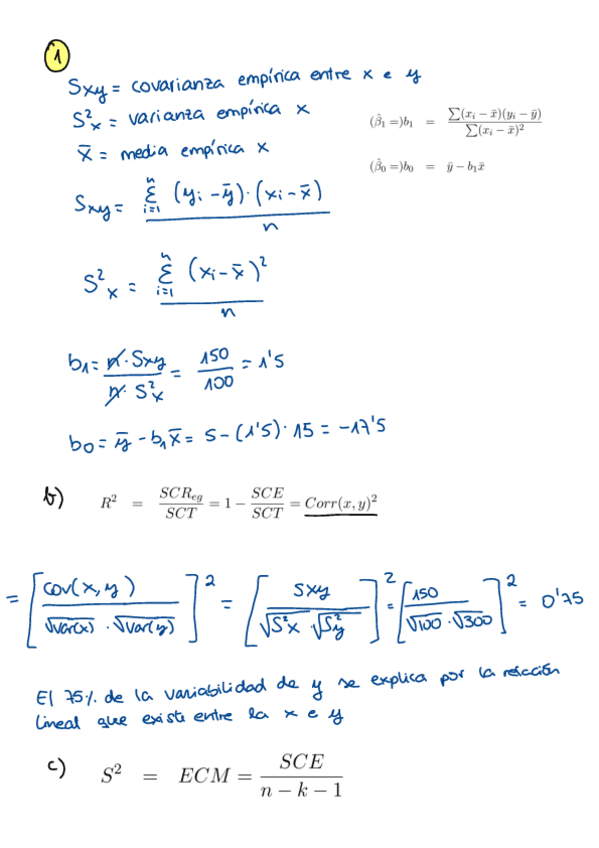 1
Sxy = covarianza empírica entre x e y
S²x = varianza empírica x
x̄ = media empírica x
(β̂₁ =)b₁ = ∑(xᵢ − x̄)(yᵢ − ȳ) / ∑(xᵢ − x̄)²
(β̂₀ =)b₀ = ȳ − b₁x̄
Sxy = ∑ᵢ₌₁ⁿ (yᵢ − ȳ)·(xᵢ − x̄) / n
S²x = ∑ᵢ₌₁ⁿ (xᵢ − x̄)² / n
b₁ = n·Sxy / n·S²x = 150 / 100 = 1'5
b₀ = ȳ − b₁x̄ = 5 − (1'5)·15 = −17'5
b) R² = SCR_eg / SCT = 1 − SCE / SCT = Corr(x, y)²
= [cov(x,y) / √var(x) · √var(y)]² = [Sxy / √S²x · √S²y]² = [150 / √100 · √300]² = 0'75
El 75% de la variabilidad de y se explica por la relación
lineal que existe entre la x e y
c) S² = ECM = SCE / n − k − 1